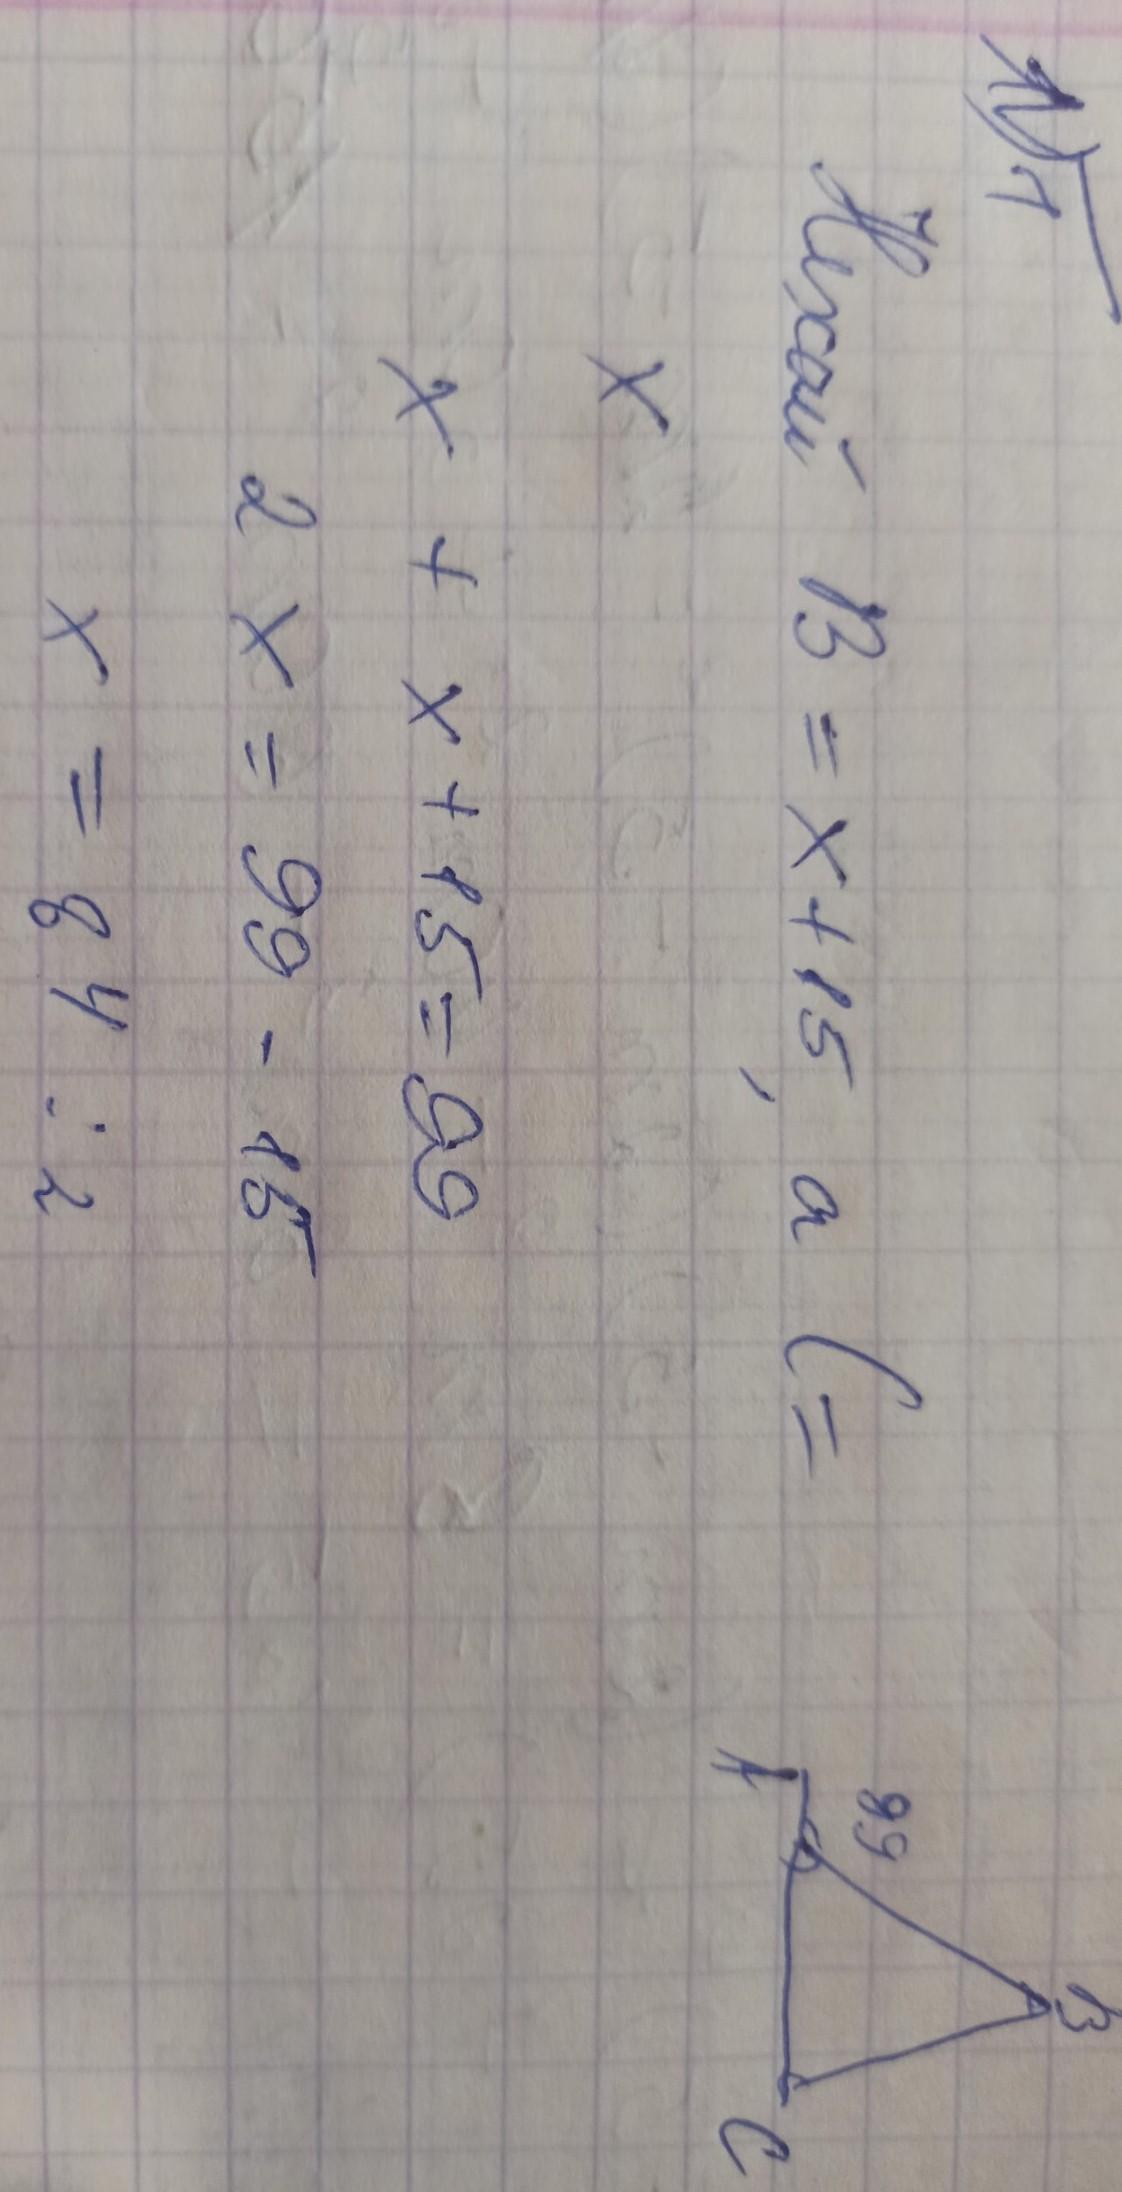 №1
Нехай B = x+15, а C =
x
x + x+15 = 99
2x = 99 - 15
x = 84 : 2
B
99
A
C